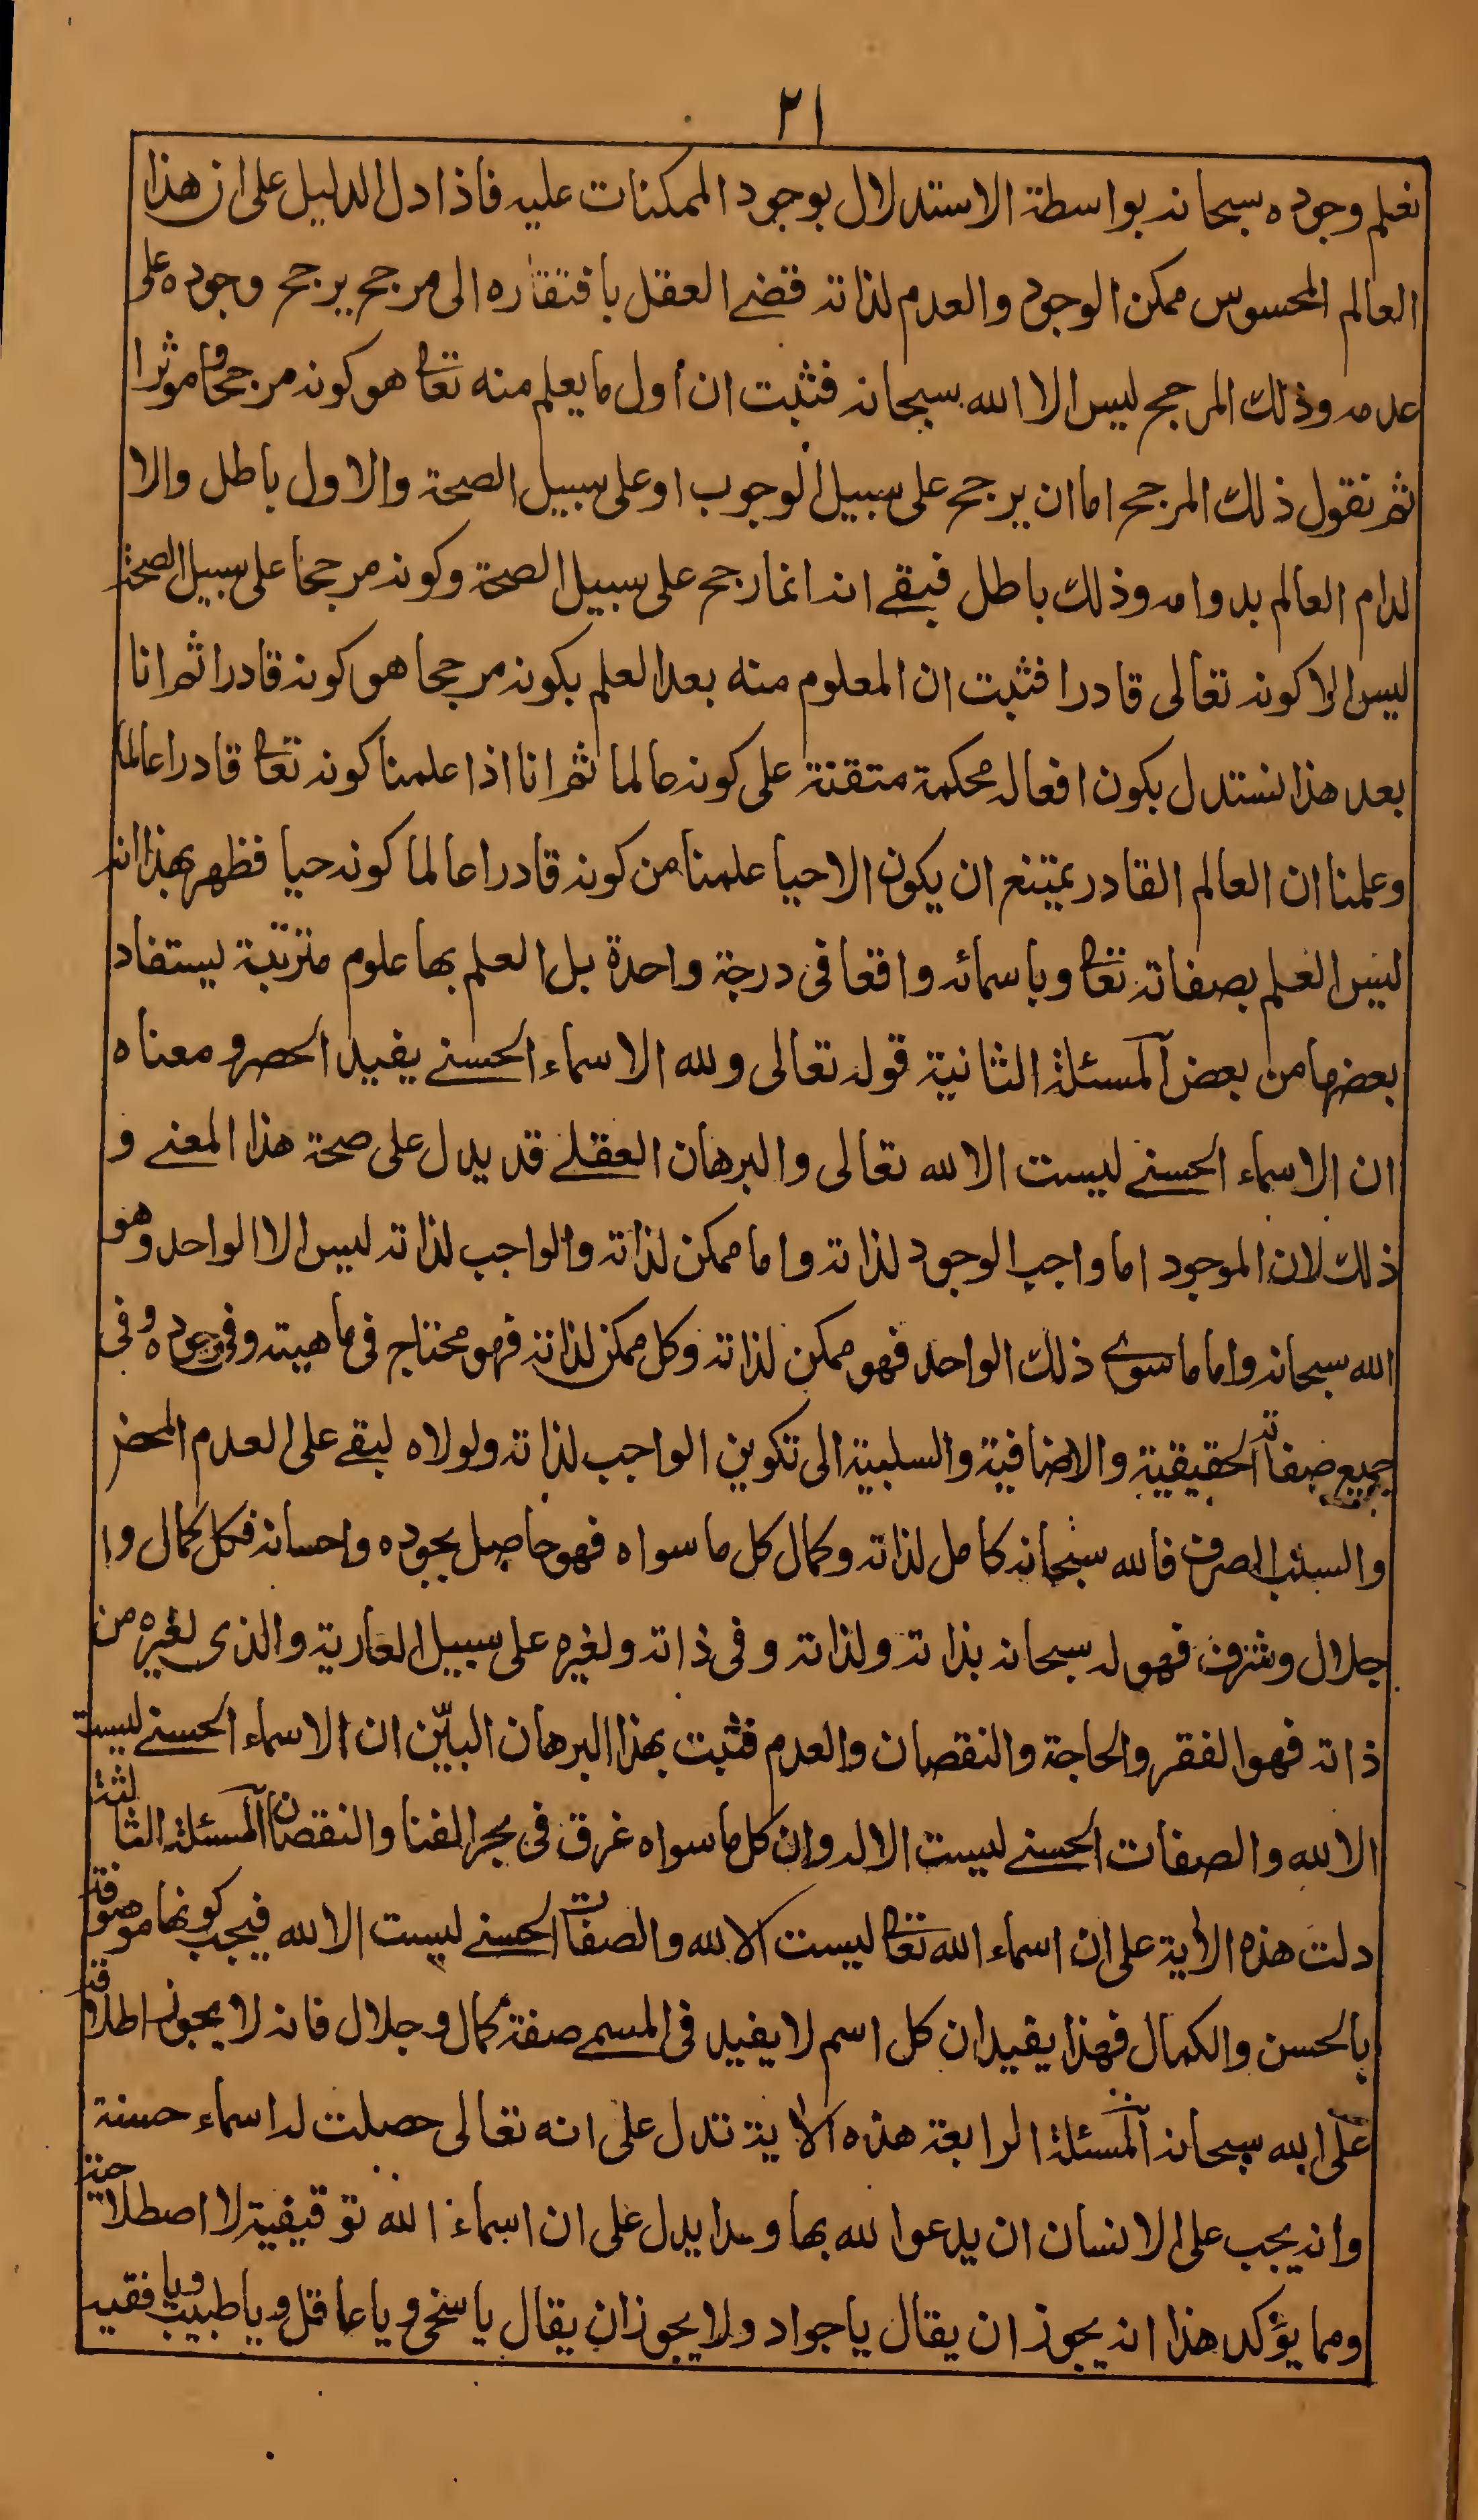 ٢١
نعلم وجوده سبحانه بواسطة الاستدلال بوجود الممكنات عليه فاذا دل الدليل على ان هذا
العالم المحسوس ممكن الوجود والعدم لذاته قضى العقل بافتقاره الى مرجح يرجح وجوده على
عدمه وذلك المرجح ليس الا الله سبحانه فثبت ان اول ما يعلم منه تعالى هو كونه مرجحا وموثرا
ثم نقول ذلك المرجح اما ان يرجح على سبيل الوجوب او على سبيل الصحة والاول باطل والا
لدام العالم بدوامه وذلك باطل فبقى انه انما رجح على سبيل الصحة وكونه مرجحا على سبيل الصحة
ليس الا كونه تعالى قادرا فثبت ان المعلوم منه بعد العلم بكونه مرجحا هو كونه قادرا ثم انا
بعد هذا نستدل بكون افعاله محكمة متقنة على كونه عالما ثم انا اذا علمنا كونه تعالى قادرا عالما
وعلمنا ان العالم القادر يمتنع ان يكون الا حيا علمنا من كونه قادرا عالما كونه حيا فظهر بهذا انه
ليس العلم بصفاته تعالى وباسمائه واقعا فى درجة واحدة بل العلم بها علوم مترتبة يستفاد
بعضها من بعض المسئلة الثانية قوله تعالى ولله الاسماء الحسنى يفيد الحصر ومعناه
ان الاسماء الحسنى ليست الا لله تعالى والبرهان العقلى قد يدل على صحة هذا المعنى و
ذلك لان الموجود اما واجب الوجود لذاته واما ممكن لذاته والواجب لذاته ليس الا الواحد وهو
الله سبحانه واما ما سوى ذلك الواحد فهو ممكن لذاته وكل ممكن لذاته فهو محتاج فى ماهيته وفى وجوده وفى
جميع صفاته الحقيقية والاضافية والسلبية الى تكوين الواجب لذاته ولولاه لبقى على العدم المحض
والسلب الصرف فالله سبحانه كامل لذاته وكمال كل ما سواه فهو حاصل بجوده واحسانه فكل كمال و
جلال وشرف فهو له سبحانه بذاته ولذاته وفى ذاته ولغيره على سبيل العارية والذى لغيره من
ذاته فهو الفقر والحاجة والنقصان والعدم فثبت بهذا البرهان البيّن ان الاسماء الحسنى ليست
الا لله والصفات الحسنى ليست الا له وان كل ما سواه غرق فى بحر الفنا والنقصان المسئلة الثالثة
دلت هذه الاية على ان اسماء الله تعالى ليست الا لله والصفات الحسنى ليست الا لله فيجب كونها موصوفة
بالحسن والكمال فهذا يفيد ان كل اسم لا يفيد فى المسمى صفة كمال وجلال فانه لا يجوز اطلاقه
على الله سبحانه المسئلة الرابعة هذه الاية تدل على انه تعالى حصلت له اسماء حسنة
وانه يجب على الانسان ان يدعوا لله بها وهذا يدل على ان اسماء الله توقيفية لا اصطلاحية
ومما يؤكد هذا انه يجوز ان يقال يا جواد ولا يجوز ان يقال يا سخى ويا عاقل ويا طبيب ويا فقيه